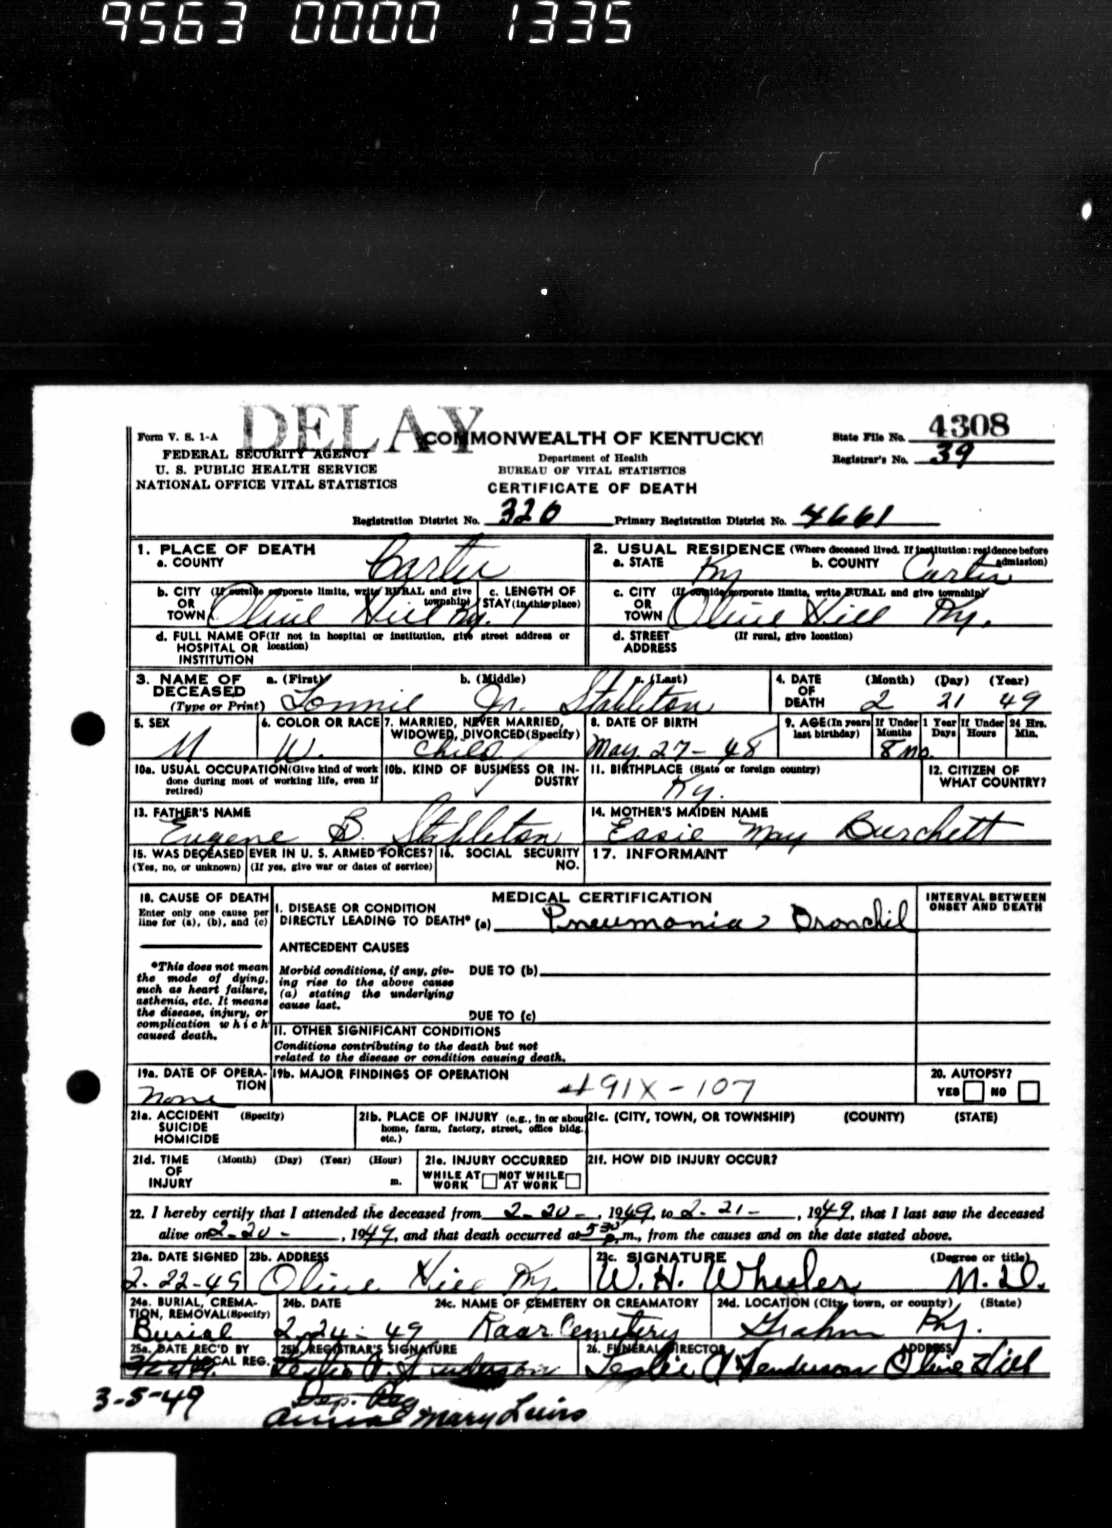 9563 0000 1335
DELAY
Form V. S. 1-A
COMMONWEALTH OF KENTUCKY
State File No. 4308
FEDERAL SECURITY AGENCY
Department of Health
Registrar's No. 39
U. S. PUBLIC HEALTH SERVICE
BUREAU OF VITAL STATISTICS
NATIONAL OFFICE VITAL STATISTICS
CERTIFICATE OF DEATH
Registration District No. 320 Primary Registration District No. 4661
1. PLACE OF DEATH
a. COUNTY Carter
2. USUAL RESIDENCE (Where deceased lived. If institution: residence before admission)
a. STATE Ky b. COUNTY Carter
b. CITY (If outside corporate limits, write RURAL and give township)
OR
TOWN Olive Hill Ky.
c. LENGTH OF
STAY (in this place) 1
c. CITY (If outside corporate limits, write RURAL and give township)
OR
TOWN Olive Hill Ky.
d. FULL NAME OF (If not in hospital or institution, give street address or location)
HOSPITAL OR
INSTITUTION
d. STREET (If rural, give location)
ADDRESS
3. NAME OF DECEASED (Type or Print)
a. (First) b. (Middle) c. (Last)
Lonnie Jr. Stapleton
4. DATE OF DEATH (Month) (Day) (Year)
2 21 49
5. SEX
M
6. COLOR OR RACE
W.
7. MARRIED, NEVER MARRIED, WIDOWED, DIVORCED (Specify)
Child
8. DATE OF BIRTH
May. 27 - 48
9. AGE (In years last birthday) If Under 1 Year Months Days If Under 24 Hrs. Hours Min.
8 mo.
10a. USUAL OCCUPATION (Give kind of work done during most of working life, even if retired)
10b. KIND OF BUSINESS OR INDUSTRY
11. BIRTHPLACE (State or foreign country)
Ky.
12. CITIZEN OF WHAT COUNTRY?
13. FATHER'S NAME
Eugene B. Stapleton
14. MOTHER'S MAIDEN NAME
Essie May Burchett
15. WAS DECEASED EVER IN U. S. ARMED FORCES?
(Yes, no, or unknown) (If yes, give war or dates of service)
16. SOCIAL SECURITY NO.
17. INFORMANT
18. CAUSE OF DEATH
Enter only one cause per line for (a), (b), and (c)
*This does not mean the mode of dying, such as heart failure, asthenia, etc. It means the disease, injury, or complication which caused death.
MEDICAL CERTIFICATION
INTERVAL BETWEEN ONSET AND DEATH
I. DISEASE OR CONDITION
DIRECTLY LEADING TO DEATH* (a) Pneumonia Bronchil
ANTECEDENT CAUSES
Morbid conditions, if any, giving rise to the above cause (a) stating the underlying cause last.
DUE TO (b)
DUE TO (c)
II. OTHER SIGNIFICANT CONDITIONS
Conditions contributing to the death but not related to the disease or condition causing death.
19a. DATE OF OPERATION
None
19b. MAJOR FINDINGS OF OPERATION
491X-107
20. AUTOPSY?
YES NO
21a. ACCIDENT (Specify)
SUICIDE
HOMICIDE
21b. PLACE OF INJURY (e.g., in or about home, farm, factory, street, office bldg., etc.)
21c. (CITY, TOWN, OR TOWNSHIP) (COUNTY) (STATE)
21d. TIME OF INJURY (Month) (Day) (Year) (Hour) m.
21e. INJURY OCCURRED
WHILE AT WORK NOT WHILE AT WORK
21f. HOW DID INJURY OCCUR?
22. I hereby certify that I attended the deceased from 2-20-, 1949, to 2-21-, 1949, that I last saw the deceased
alive on 2-20-, 1949, and that death occurred at 5 30 p.m., from the causes and on the date stated above.
23a. DATE SIGNED
2-22-49
23b. ADDRESS
Olive Hill Ky.
23c. SIGNATURE (Degree or title)
W. H. Wheeler M.D.
24a. BURIAL, CREMATION, REMOVAL (Specify)
Burial
24b. DATE
2-24-49
24c. NAME OF CEMETERY OR CREAMATORY
Kaar Cemetery
24d. LOCATION (City, town, or county) (State)
Grahn Ky.
25a. DATE REC'D BY LOCAL REG.
25b. REGISTRAR'S SIGNATURE
Leslie A. Henderson
26. FUNERAL DIRECTOR ADDRESS
Leslie A Henderson Olive Hill
3-5-49
Dep. Reg
Mary Lewis